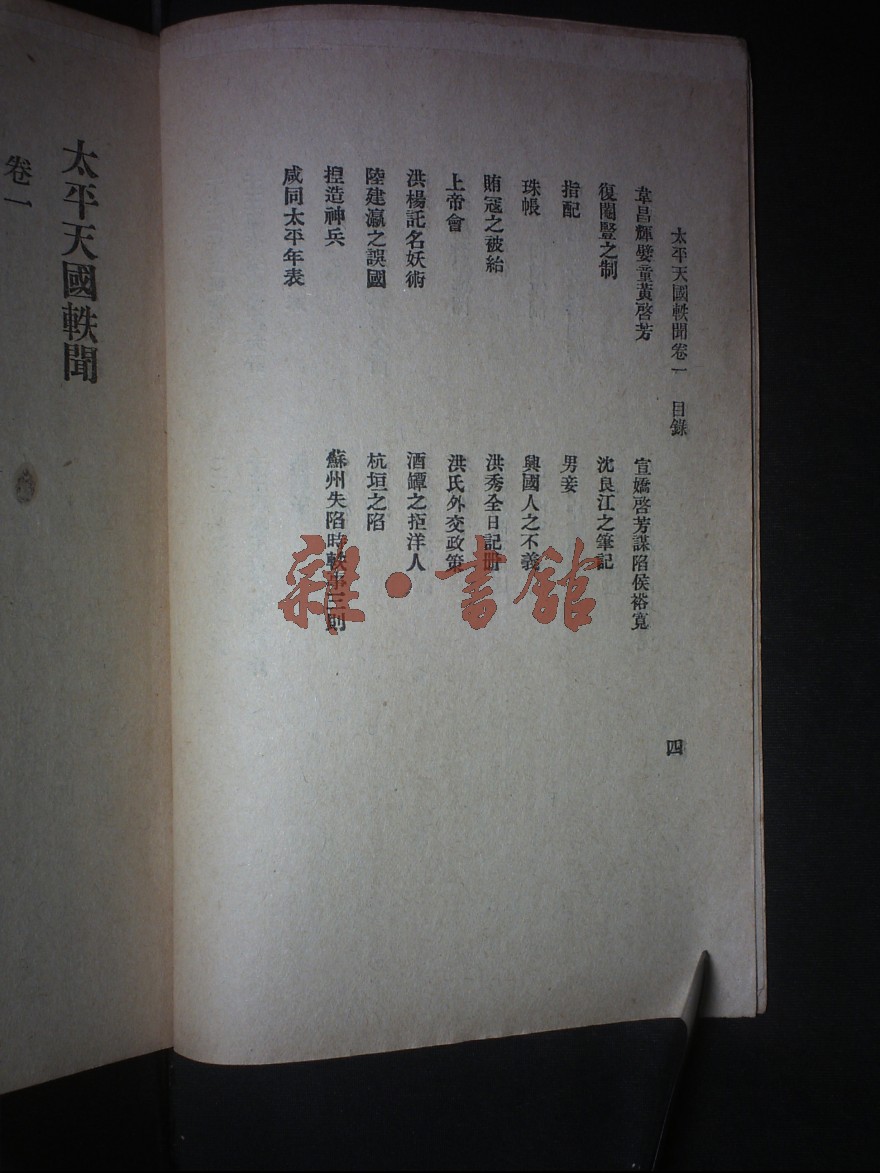 太平天國軼聞卷一　目錄
四
韋昌輝嬖童黃啓芳
宣嬌啓芳謀陷侯裕寬
復閹豎之制
沈良江之筆記
指配
男妾
珠帳
興國人之不義
賄冦之被給
洪秀全日記冊
上帝會
洪氏外交政策
洪楊託名妖術
酒罈之拒洋人
陸建瀛之誤國
杭垣之陷
捏造神兵
蘇州失陷時軼事三則
咸同太平年表
太平天國軼聞
卷一
雜·書館